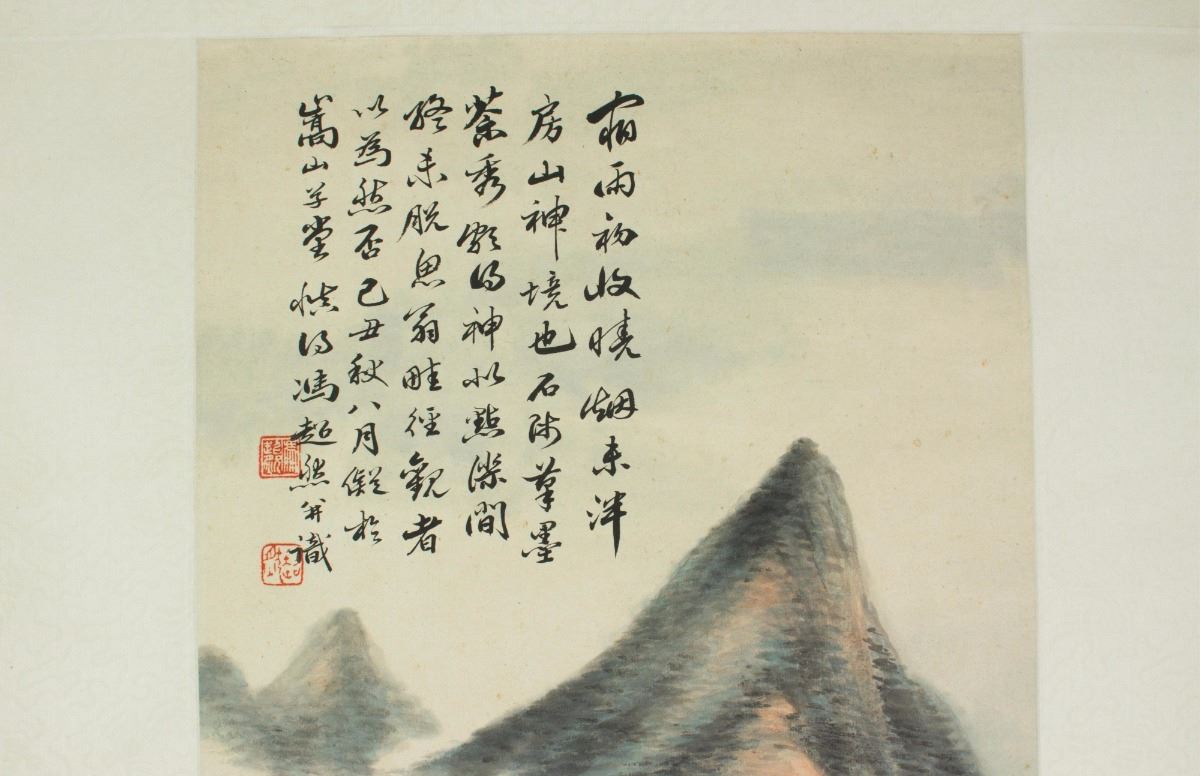 宿雨初收曉烟未泮
房山神境也石師筆墨
蒼秀頗得神似點染間
終未脫思翁畦徑觀者
以為然否己丑秋八月儗於
嵩山草堂慎得馮超然并識